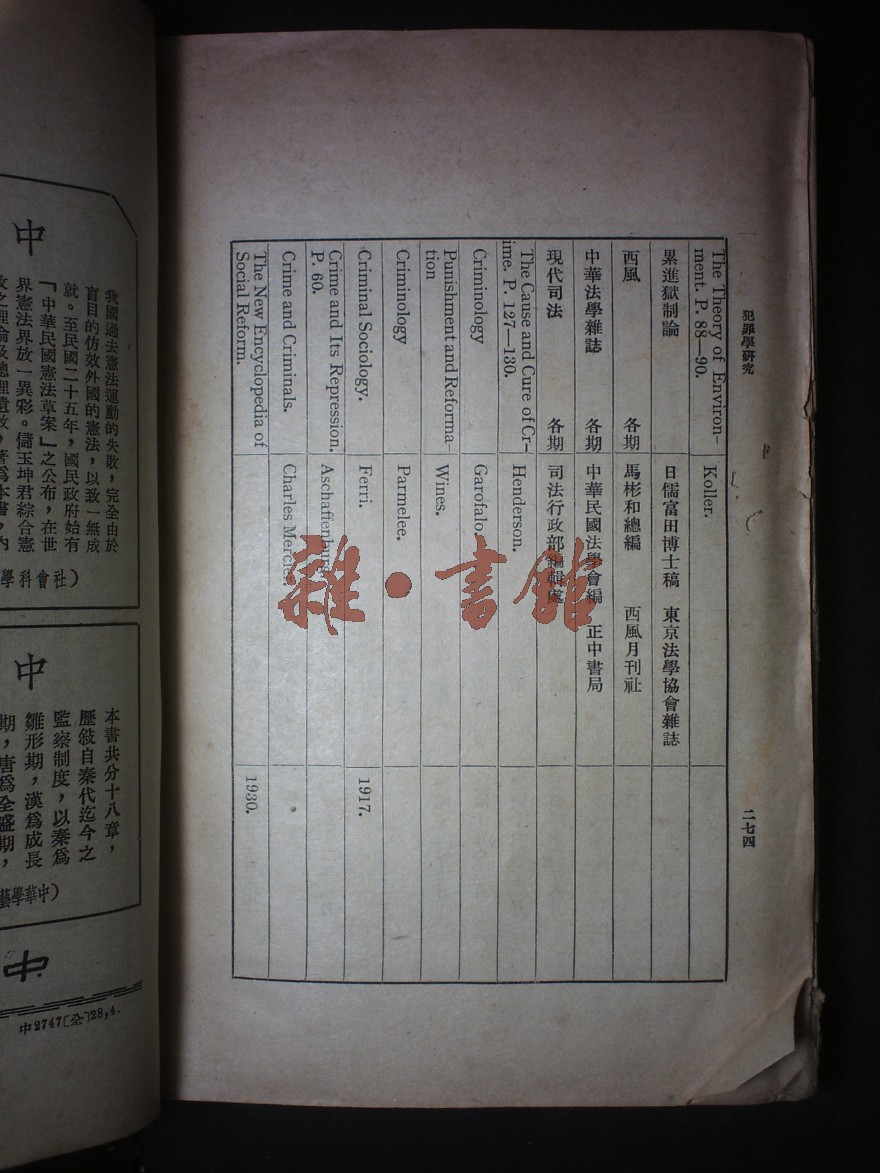 犯罪學研究
二七四
The Theory of Environ-
ment. P. 88—90.
Koller.
累進獄制論
日儒富田博士稿 東京法學協會雜誌
西風 各期
馬彬和總編 西風月刊社
中華法學雜誌 各期
中華民國法學會編 正中書局
現代司法 各期
司法行政部編輯處
The Cause and Cure of Cr-
ime. P. 127—130.
Henderson.
Criminology
Garofalo
Punishment and Reforma-
tion
Wines.
Criminology
Parmelee.
Criminal Sociology.
Ferri.
1917.
Crime and Its Repression.
P. 60.
Aschaffenburg
Crime and Criminals.
Charles Mercier.
The New Encyclopedia of
Social Reform.
1930.
雜·書館
中
我國過去憲法運動的失敗，完全由於
盲目的仿效外國的憲法，以致一無成
就。至民國二十五年，國民政府始有
「中華民國憲法草案」之公布，在世
界憲法界放一異彩。儲玉坤君綜合憲
政之理論及總理遺教，著爲本書，內
（社會科學
中
本書共分十八章，
歷敍自秦代迄今之
監察制度，以秦爲
雛形期，漢爲成長
期，唐爲全盛期，
（中華學藝
中
中2747〔全〕28,4.